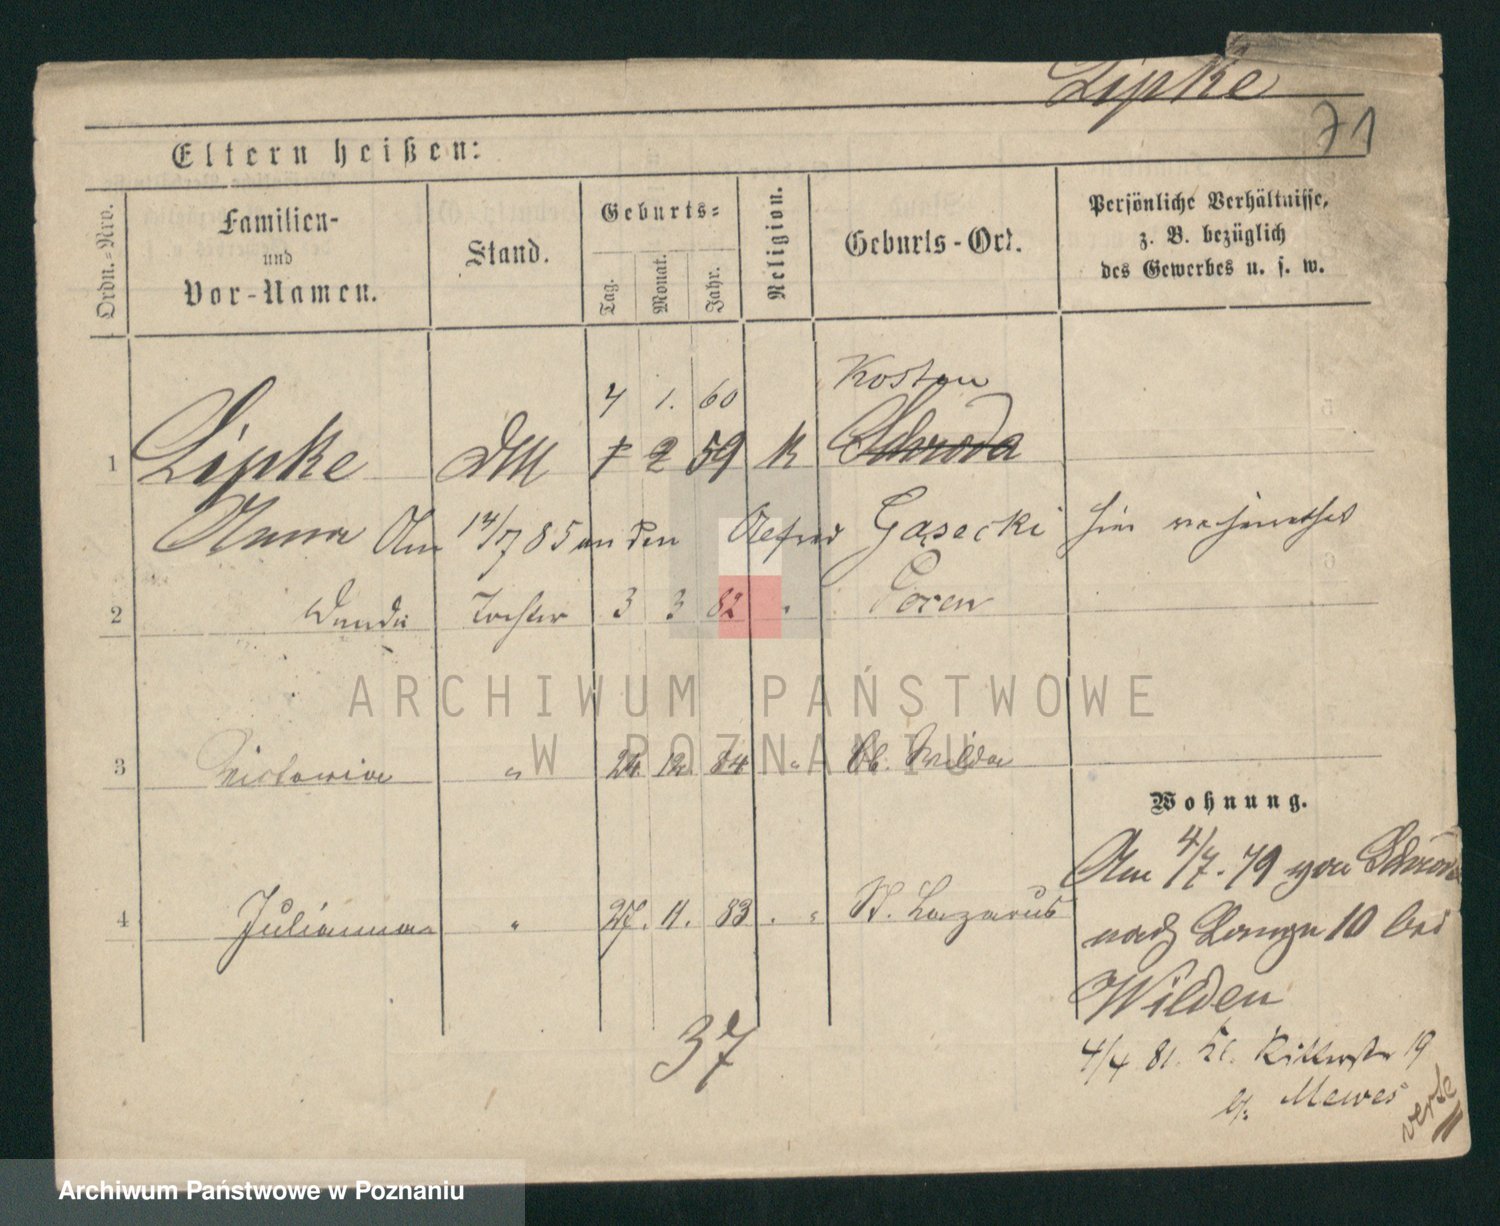 Lipke
71
Eltern heißen:
Ordn.-Nro.
Familien-
und
Vor-Namen.
Stand.
Geburts=
Tag.
Monat.
Jahr.
Religion.
Geburts-Ort.
Persönliche Verhältnisse,
z. B. bezüglich
des Gewerbes u. s. w.
4 1. 60 Kosten
1 Lipke 2 59 K Schroda
Anna Am 14/7 85 an den Alfred Gąsecki hier verheirathet
2 Wanda Tochter 3 3 82 " Posen
3 Victoria " 24 12 84 " Ob. Wilda
4 Julianna " 27. 11. 83 . " St. Lazarus
Wohnung.
Am 4/7. 79 von Schroda
nach Lange 10 bei
Wilden
4/4 81. Kl. Ritterstr 19
b. Mewes
verte
37
ARCHIWUM PAŃSTWOWE
W POZNANIU
Archiwum Państwowe w Poznaniu